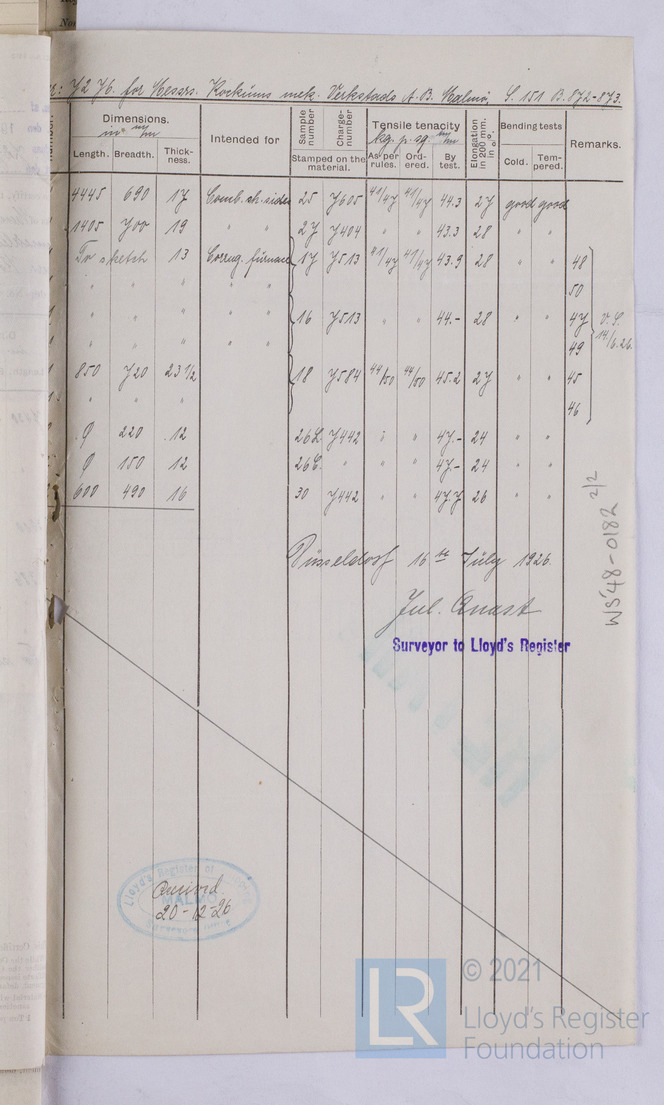 72 76. for Messrs. Kockums mek. Verkstads A. B. Malmö, S. 151 B. 872-873.
Dimensions. in m/m Intended for Sample number Charge-number Tensile tenacity kg. p. sq. m/m Elongation in 200 mm. in %. Bending tests Remarks.
Length. Breadth. Thick-ness. Stamped on the material. As per rules. Ord-ered. By test. Cold. Tem-pered.
4445 690 17 Comb. ch. sides 25 7605 41/47 41/47 44.3 27 good good
1405 700 19 " " 27 7404 " " 43.3 28 " "
To sketch 13 Corrug. furnace 17 7513 41/47 41/47 43.9 28 " " 48
" " " " 50
" " " " 16 7513 " " 44.- 28 " " 47 V. S. 14/6.26.
" " " " 49
850 720 23 1/2 18 7584 44/50 44/50 45.2 27 " " 45
" " " 46
Ø 220 12 26L 7442 " " 47.- 24 " "
Ø 150 12 26C. " " " 47.- 24 " "
600 490 16 30 7442 " " 47.7 26 " "
Düsseldorf 16th July 1926.
Jul. Anast
Surveyor to Lloyd's Register
WS48-0182 2/2
Lloyd's Register of
MALMÖ
Received
20-12-26
LR
© 2021
Lloyd's Register
Foundation